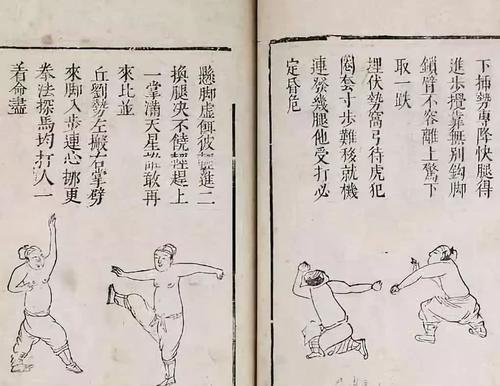 下插勢專降快腿得
進步攪靠無別鈎脚
鎖臂不容離上驚下
取一跌
埋伏勢窩弓待虎犯
圈套寸步難移就機
連發幾腿他受打必
定昏危
懸脚虛餌彼輕進二
換腿决不饒輕趕上
一掌滿天星誰敢再
來比並
丘劉勢左搬右掌劈
來脚入步連心挪更
拳法探馬均打人一
着命盡